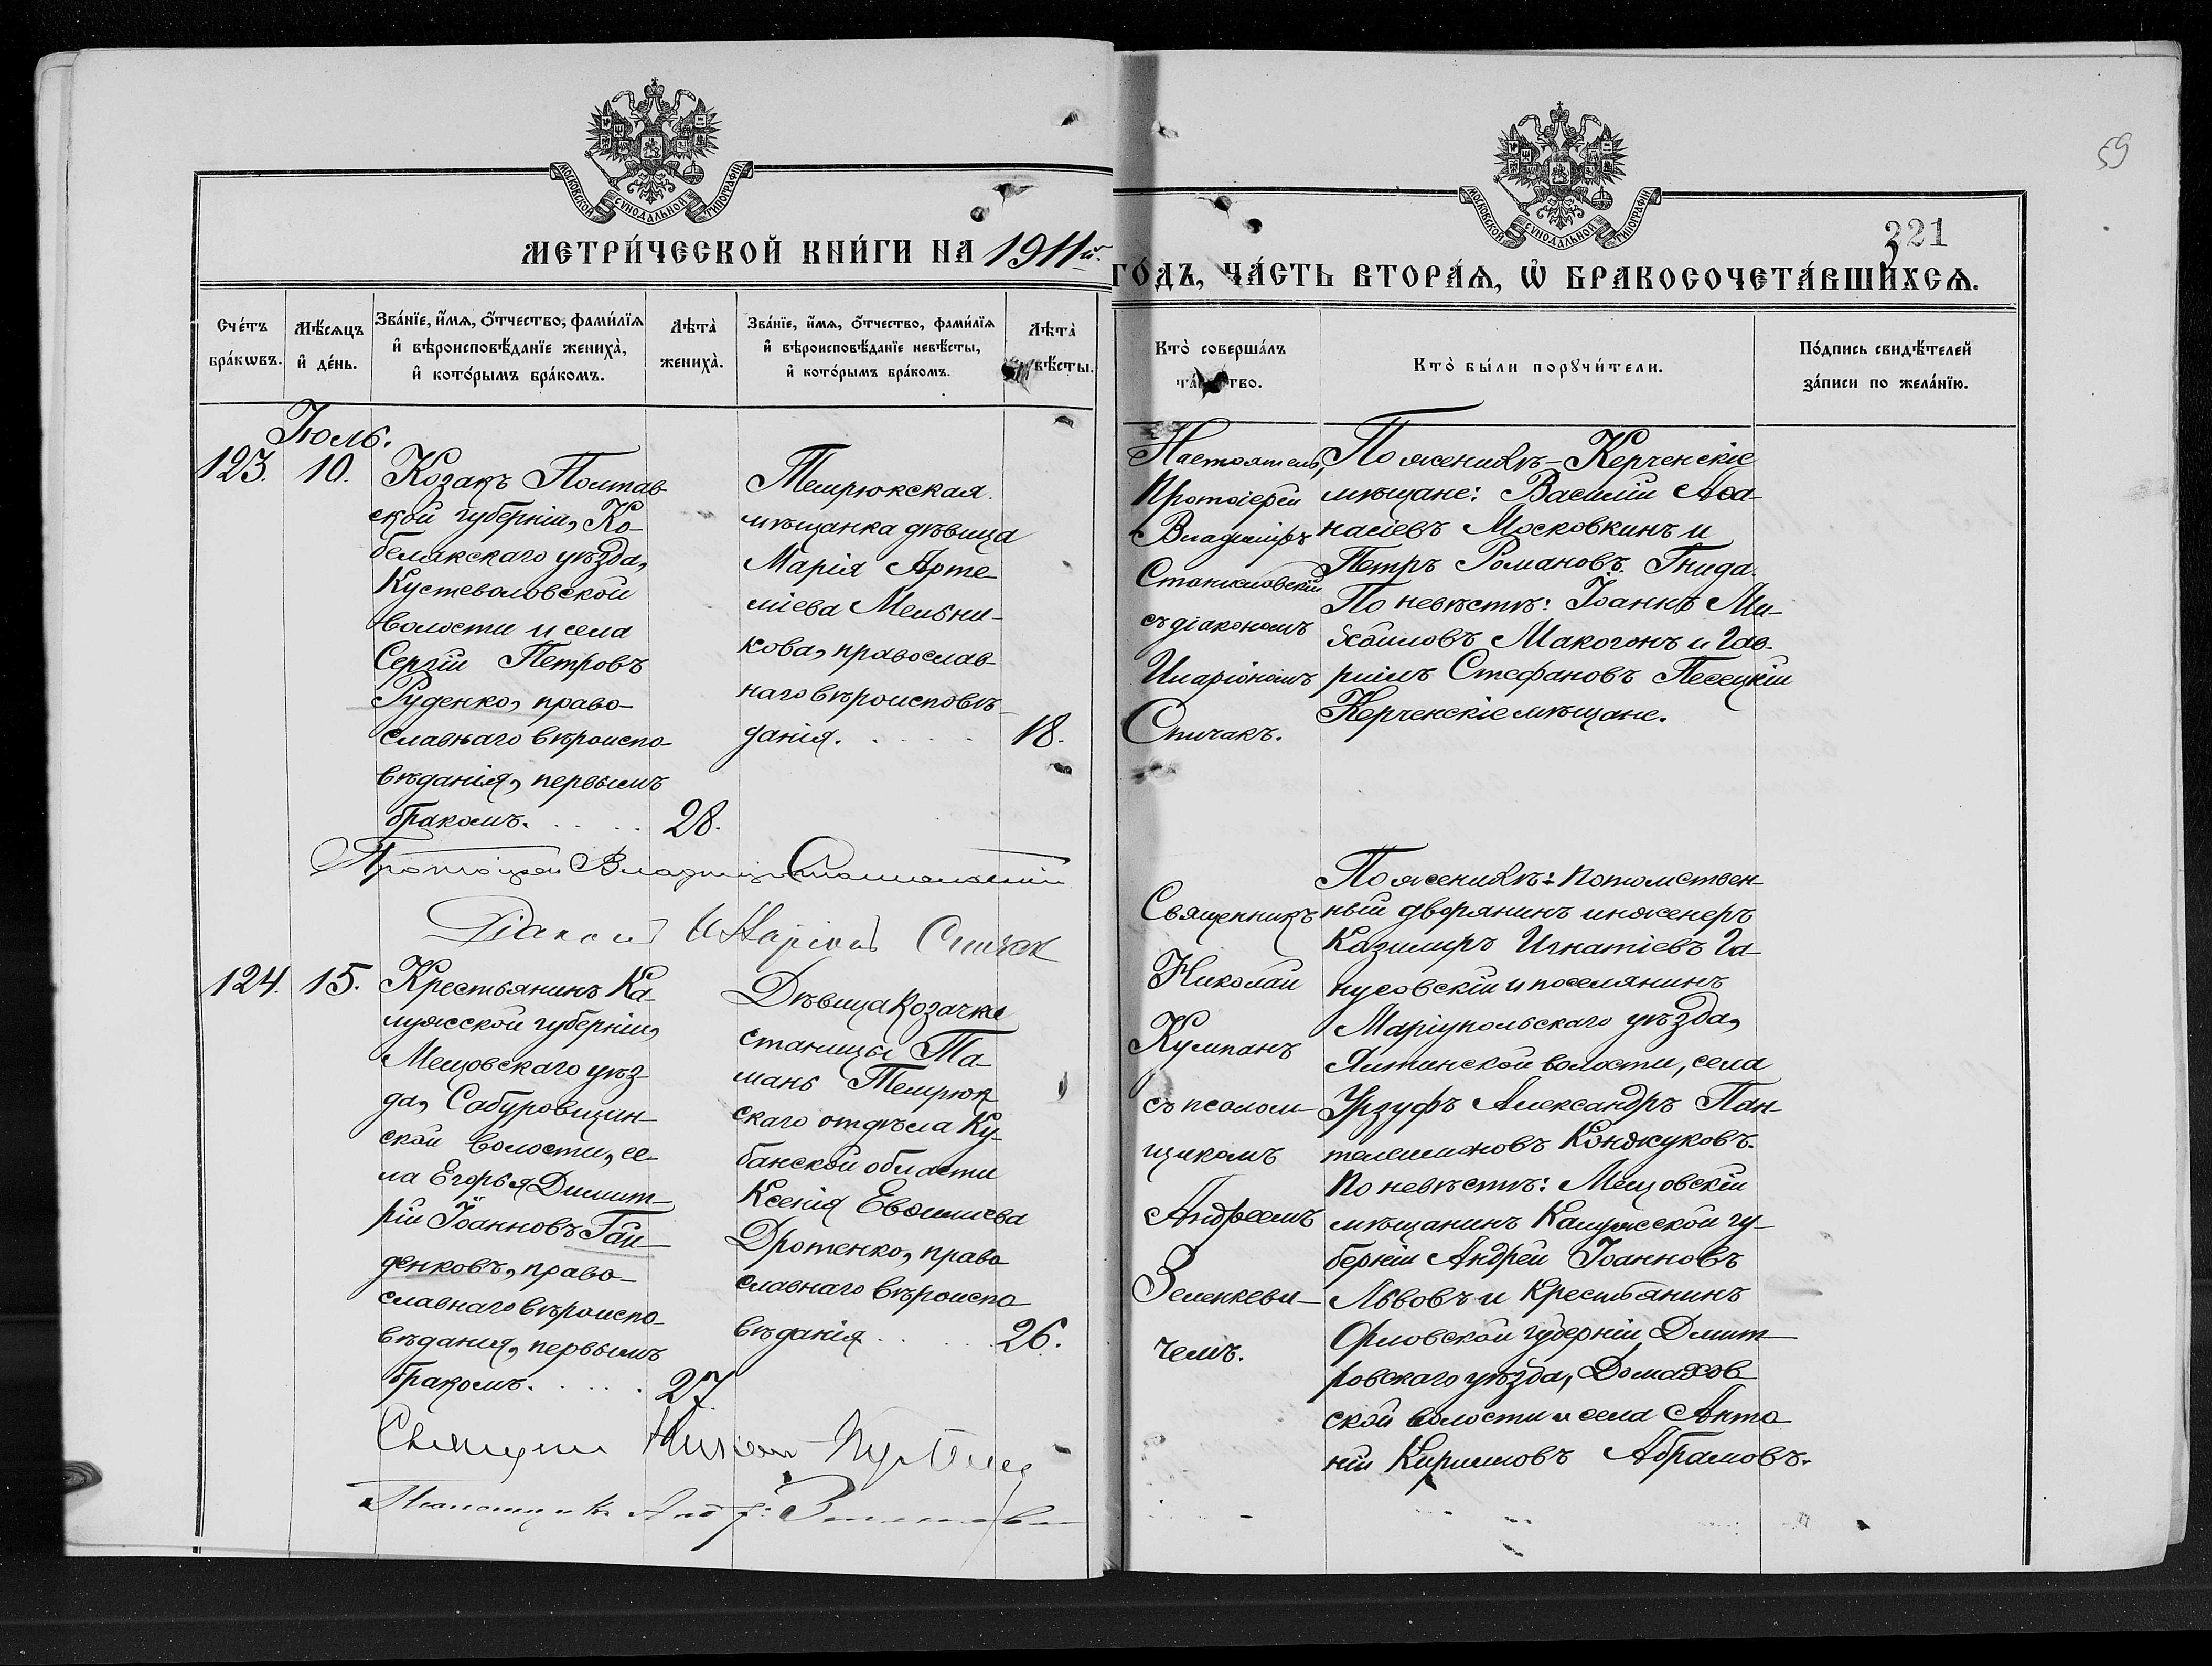 59
МОСКОВСКОЙ СѴНОДАЛЬНОЙ ТИПОГРАФІИ
МОСКОВСКОЙ СѴНОДАЛЬНОЙ ТИПОГРАФІИ
221
МЕТРИ́ЧЕСКОЙ КНИ́ГИ НА 1911й.
ГО́ДЪ, ЧА́СТЬ ВТОРА́Ѧ, Ѡ҆ БРАКОСОЧЕТА́ВШИХСѦ.
Сче́тъ
бра́кѡвъ.
Мѣ́сѧцъ
и҆ де́нь.
Зва́нїе, и҆́мѧ, ѻ҆́тчество, фами́лїѧ
и҆ вѣроисповѣ́данїе жениха̀,
и҆ кото́рымъ бра́комъ.
Лѣта̀
жениха̀.
Зва́нїе, и҆́мѧ, ѻ҆́тчество, фами́лїѧ
и҆ вѣроисповѣ́данїе невѣ́сты,
и҆ кото́рымъ бра́комъ.
Лѣта̀
невѣ́сты.
Кто̀ соверша́лъ
та́инство.
Кто̀ бы́ли порꙋчи́тели.
По́дпись свидѣ́телей
за́писи по жела́нїю.
Іюль.
123.
10.
Козакъ Полтав-
ской губерніи, Ко-
белякскаго уѣзда,
Кустеволовской
волости и села
Сергій Петровъ
Руденко, право-
славнаго вѣроиспо-
вѣданія, первымъ
бракомъ.
28.
Темрюкская
мѣщанка дѣвица
Марія Арте-
міева Мельни-
кова, православ-
наго вѣроисповѣ-
данія.
18.
Настоятель,
Протоіерей
Владиміръ
Станиславскій
съ діакономъ
Иларіономъ
Спичакъ.
По женихѣ – Керченскіе
мѣщане: Василій Аѳа-
насіевъ Московкинъ и
Петръ Романовъ Гнида.
По невѣстѣ: Іоаннъ Ми-
хаиловъ Макогонъ и Гав-
ріилъ Стефановъ Песецкій
Керченскіе мѣщане.
Протоіерей Владиміръ Станиславскій
Діаконъ Иларіонъ Спичак
124.
15.
Крестьянинъ Ка-
лужской губерніи,
Мещовскаго уѣз-
да, Сабуровщин-
ской волости, се-
ла Егорья Димит-
рій Іоанновъ Гай-
денковъ, право-
славнаго вѣроиспо-
вѣданія, первымъ
бракомъ.
27.
Дѣвица козачка
станицы Та-
мань Темрюк-
скаго отдѣла Ку-
банской области
Ксенія Евѳиміева
Дротенко, право
славнаго вѣроиспо
вѣданія.
26.
Священникъ
Николай
Кумпанъ
съ псалом-
щикомъ
Андреемъ
Зеленкеви-
чемъ.
По женихѣ: потомствен-
ный дворянинъ инженеръ
Казимиръ Игнатіевъ Га-
нусовскій и поселянинъ
Маріупольскаго уѣзда,
Ялтинской волости, села
Урзуфъ Александръ Пан-
телеимоновъ Конжуковъ.
По невѣстѣ: Мещовскій
мѣщанинъ Калужской гу-
берніи Андрей Іоанновъ
Львовъ и крестьянинъ
Орловской губерніи, Дмит-
ровскаго уѣзда, Домахов-
ской волости и села Анто
ній Кирилловъ Абрамовъ.